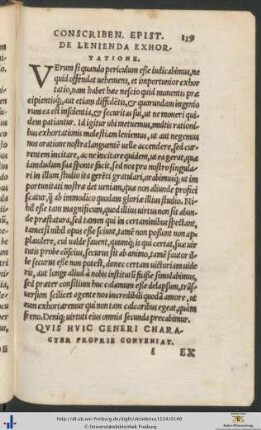 CONSCRIBEN. EPIST. 139
DE LENIENDA EXHOR-
TATIONE.
VErum si quando periculum esse iudicabimus, ne
quid offendat uehemens, et importunior exhor
tatio, nam habet hæc nescio quid monentis præ
cipientisq;, aut etiam diffidētis, & quorundam ingenio
rum ea est inscientia, & securitas sui, ut ne moneri qui
dem patiantur. Id igitur ubi metuemus, multis rationi-
bus exhortationis molestiam leniemus, ut aut negemus
nos oratione nostra languentē uelle accendere, sed
currentem incitare, ac ne incitare quidem, ut ea gerat, quæ
iamdudum sua sponte facit, sed nos pro nostro singula-
ri in illum studio ita gestire gratulari, orabimusq; ut im
portunitati nostræ det ueniam, quæ non aliunde profici
scatur, q̃ ab immodico quodam gloriæ illius studio. Ni
hil esse tam magnificum, quod illius uirtus non sit abun
de præstatura, sed tamen qui in certaminibus spectant,
tametsi nihil opus esse sciunt, tamē non possunt non ap
plaudere, cui ualde fauent, quamq; is qui certat, suæ uir
tutis probe cōscius, securus sit ab animo, tamē fautor il-
le securus esse non potest, donec certam uictoriam uide
rit, aut longe aliud à nobis institutū fuisse simulabimus,
sed præter consilium huc eadamum esse delapsum, trās-
uersum scilicet agente nos incredibili quodā amore, ut
eum exhortaremur qui non tam calcaribus egeat, quàm
freno. Deniq; uirtuti eius omnia secunda precabimur.
QVIS HVIC GENERI CHARA-
CTER PROPRIE CONVENIAT.
I EX
http://dl.ub.uni-freiburg.de/diglit/desiderius1534/0149
© Universitätsbibliothek Freiburg